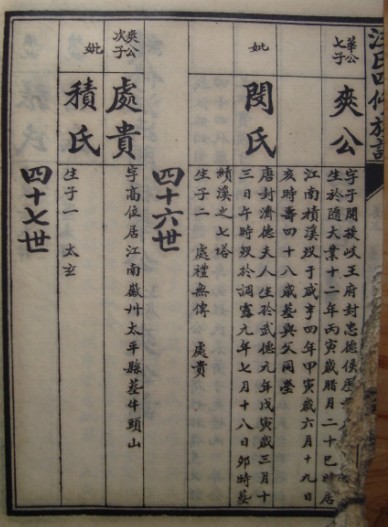 汪氏四修族譜
華公
七子
爽公
字子開拔歧王府封忠德侯
生於隨大業十二年丙寅歲臘月二十巳時居
江南積溪歿于咸亨四年甲寅歲六月十九日
亥時壽四十八歲墓與父同塋
妣
閔氏
唐封濟德夫人生於武德元年戊寅歲三月十
三日午時歿於調露元年七月十八日卯時墓
績溪之七塔
生子二 處禮無傳 處貴
四十六世
爽公
次子
處貴
字高位居江南徽州太平縣墓牛頭山
妣
積氏
生子一 太玄
四十七世